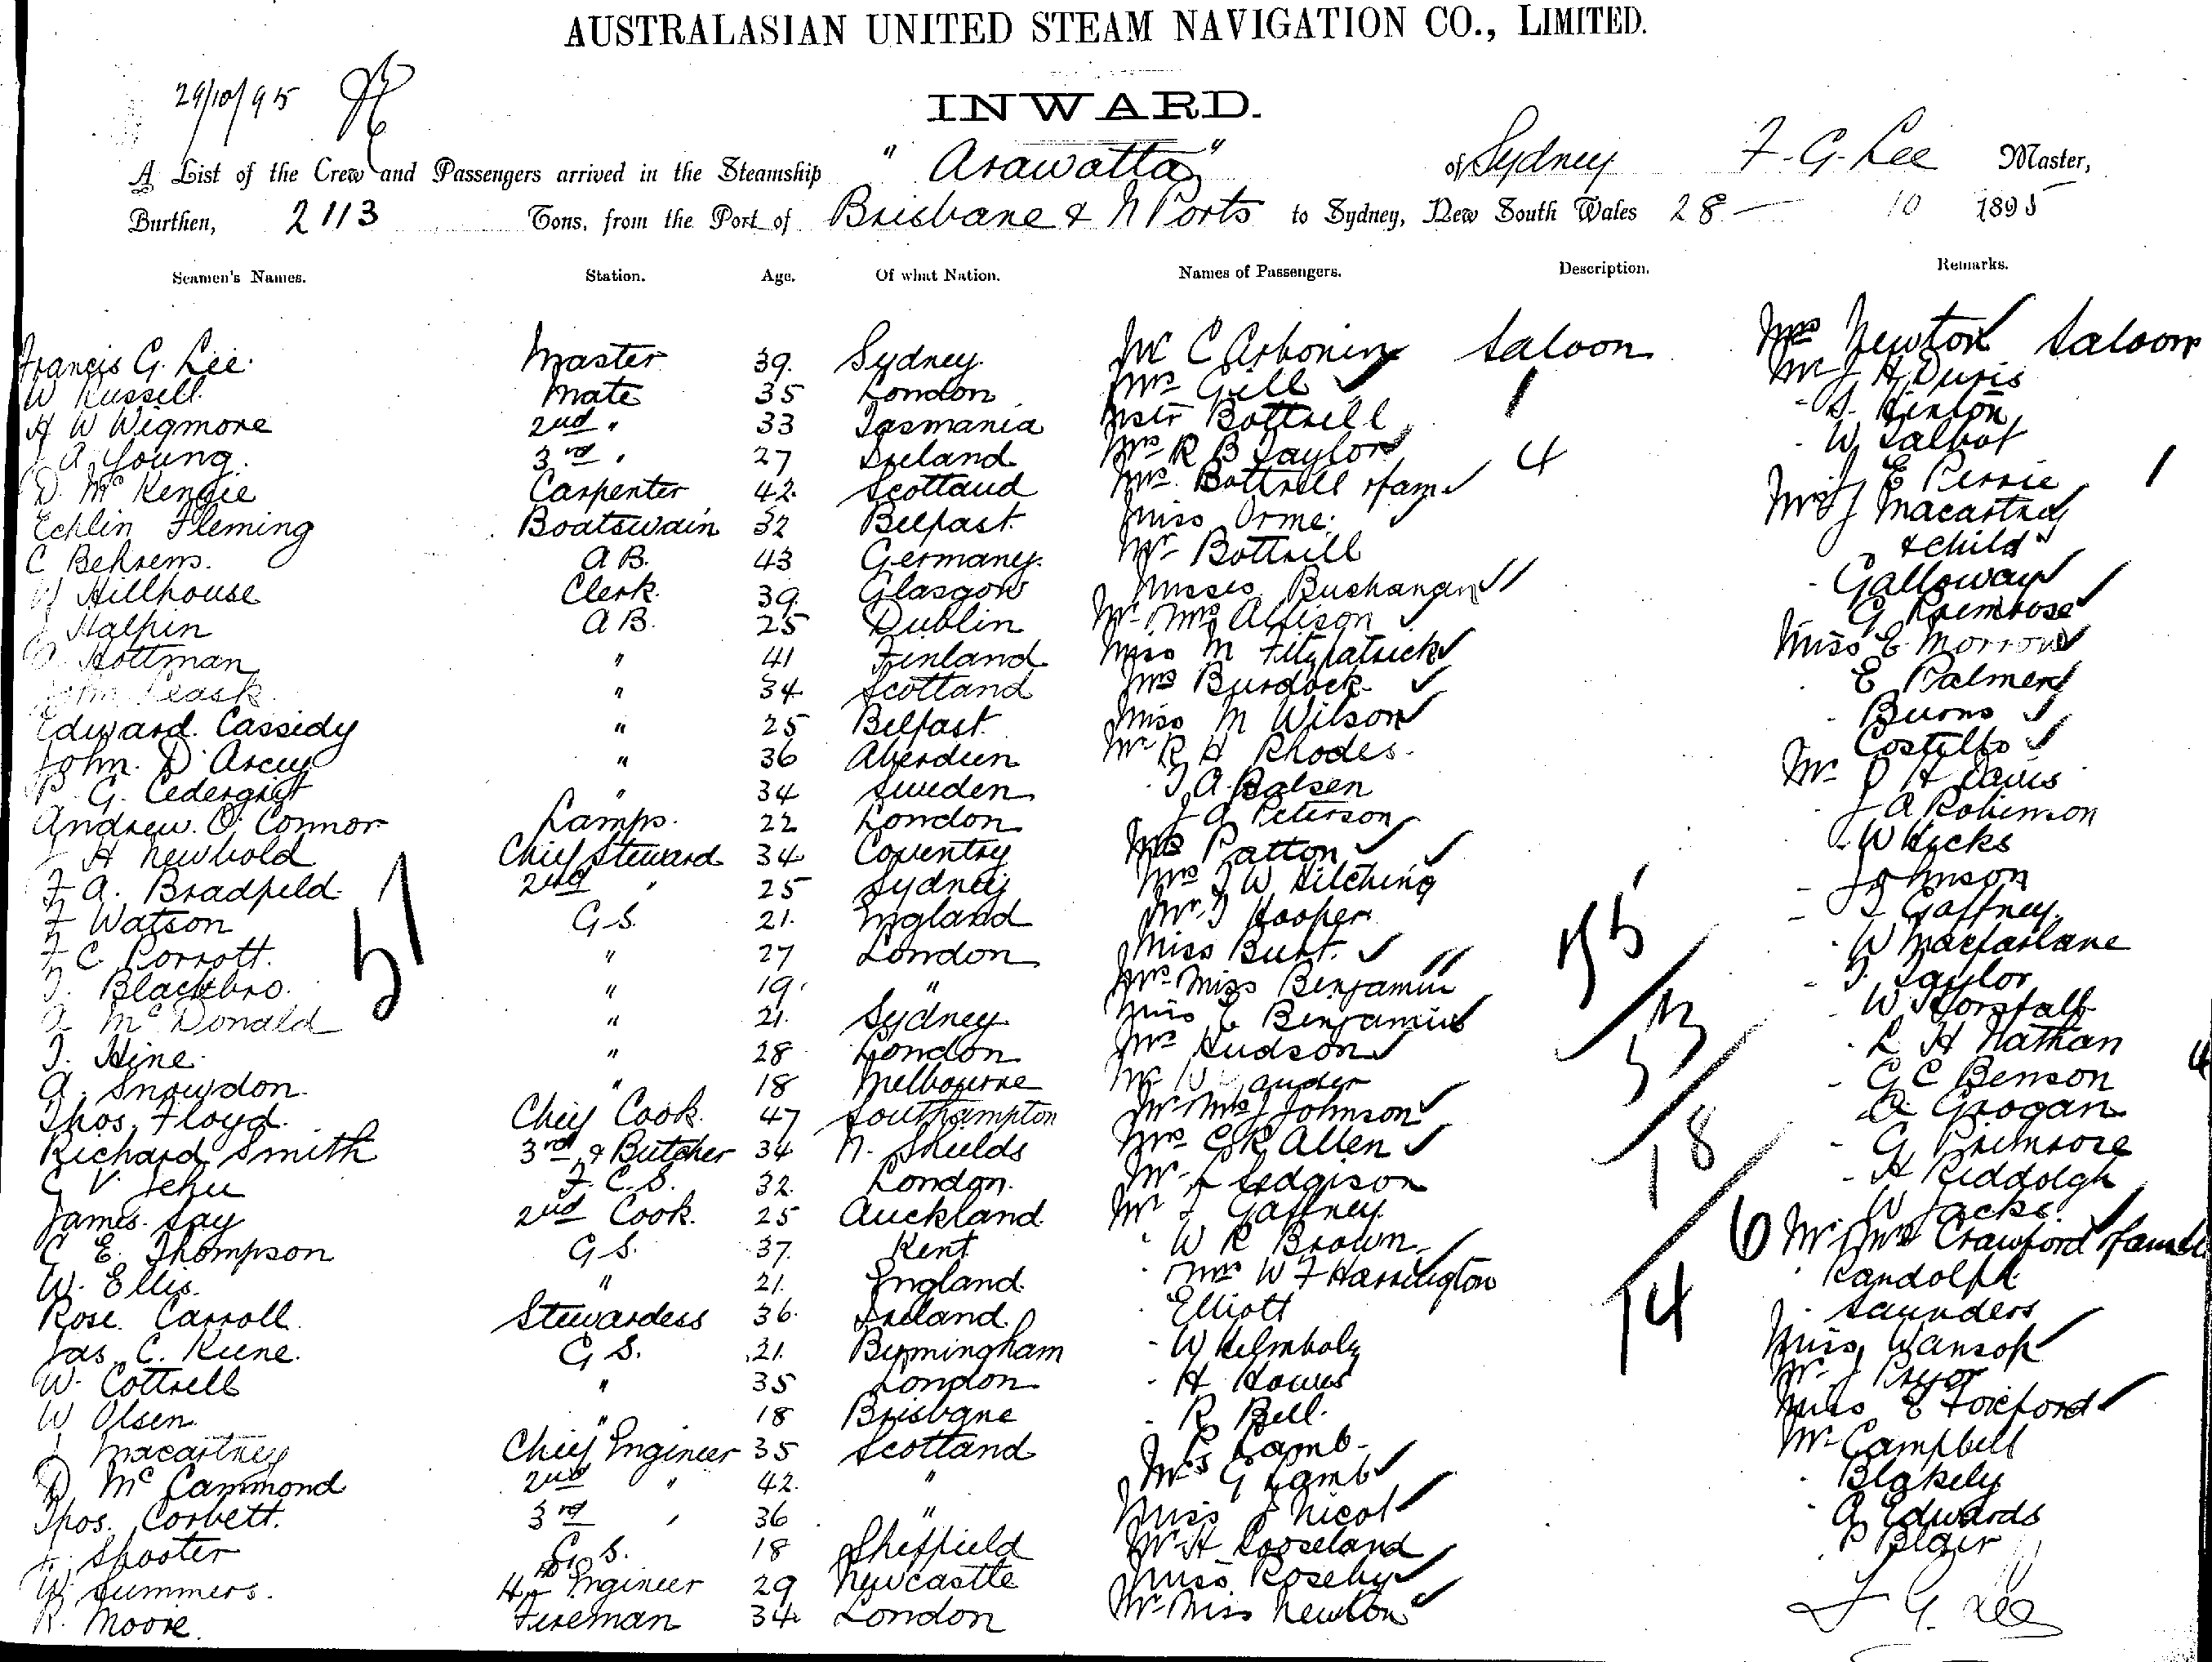 AUSTRALASIAN UNITED STEAM NAVIGATION CO., LIMITED.
29/10/95
INWARD.
A List of the Crew and Passengers arrived in the Steamship "Arawatta" of Sydney F. G. Lee Master,
Burthen, 2113 Tons, from the Port of Brisbane & N Ports to Sydney, New South Wales 28 — 10 1895
Seamen's Names. Station. Age. Of what Nation. Names of Passengers. Description. Remarks.
Francis G. Lee. Master 39. Sydney. Mr C Saloon Mrs Newton Saloon
W Russell. Mate 35 London Mrs Gill 1 Mr J H Duris
H W Wigmore 2nd " 33 Tasmania Mstr Bottrell S. Hinton
J A Young. 3rd " 27 Ireland Mrs R B Taylor W Talbot
D. McKenzie Carpenter 42. Scotland Mrs. Bottrell & fam 4 E Perrie 1
Echlin Fleming Boatswain 32 Belfast. Miss Orme. Mrs J Macartney
C Behrens. A B. 43 Germany. Mr Bottrell & child
W Hillhouse Clerk. 39. Glasgow Misses Buchanan Galloway
J Halpin A B. 25 Dublin Mr Mrs Allison G Primrose
Hottman " 41 Finland Miss M Fitzpatrick Miss E Morrow
John Leask " 34 Scotland Mrs Burdock E Palmer
Edward Cassidy " 25 Belfast. Miss M Wilson Burns
John. D'Arcy " 36 Aberdeen Mr R H Rhodes. Costello
P. G. Cedergrist " 34 Sweden T A Balsen Mr D H Davis
Andrew. O'Connor Lamps. 22 London J A Peterson J A Robinson
J H Newbold Chief Steward 34 Coventry Mrs Patton W Hicks
F A. Bradfield 2nd " 25 Sydney Mrs J W Hitching Johnson
F Watson G S. 21. England Mr J Hooper T Gaffney
51
F C. Porrott. " 27 London Miss Burt. 55 W Macfarlane
T. Blackbro. " 19. " Mrs Miss Benjamin T. Taylor
A McDonald " 21. Sydney Miss E Benjamin W Horsfall
T. Hine. " 28 London Mrs Hudson 53 L H Nathan
A. Snowdon. " 18 Melbourne Mr G C Benson 4
Thos. Floyd. Chief Cook. 47 Southampton Mr Mrs J Johnson A Grogan
Richard Smith 3rd & Butcher 34 N. Shields Mrs C R Allen 18 G Primrose
G V. Jehu F. C. S. 32. London. Mr L Sedgison H Riddolgh
James. Jay 2nd Cook. 25 Auckland. Mr T Gaffney W Jacks.
C E. Thompson G S. 37. Kent W R Brown 6 Mr Mrs Crawford & family
W. Ellis. " 21. England. Mrs W F Harrington Randolph
Rose. Carroll. Stewardess 36. Ireland. Elliott 14 Saunders
Jas. C. Keene. G S. 21. Birmingham W Helmholz Miss Wansop
W. Cottrell " 35 London H Howes Mr J Pryor
W Olsen. " 18 Brisbane R Bell. Miss E Foxford
J Macartney Chief Engineer 35 Scotland R Lamb Mr Campbell
D McCammond 2nd " 42. " Mrs G Lamb Blakely
Thos. Corbett. 3rd " 36 " Miss J Nicol A Edwards
J. Shooter G. S. 18 Sheffield Mr H Looseland P Blair
W Summers. 4th Engineer 29 Newcastle Miss Roseby
R. Moore. Fireman 34 London Mr Miss Newton F G. Lee